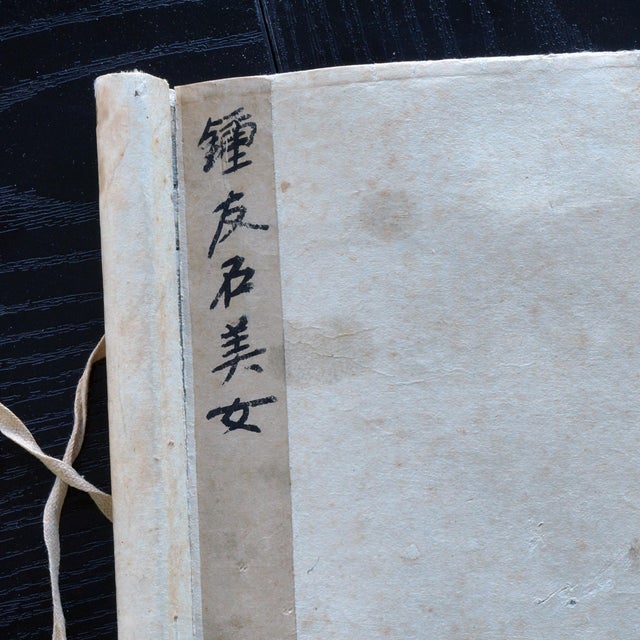 鍾友石美女